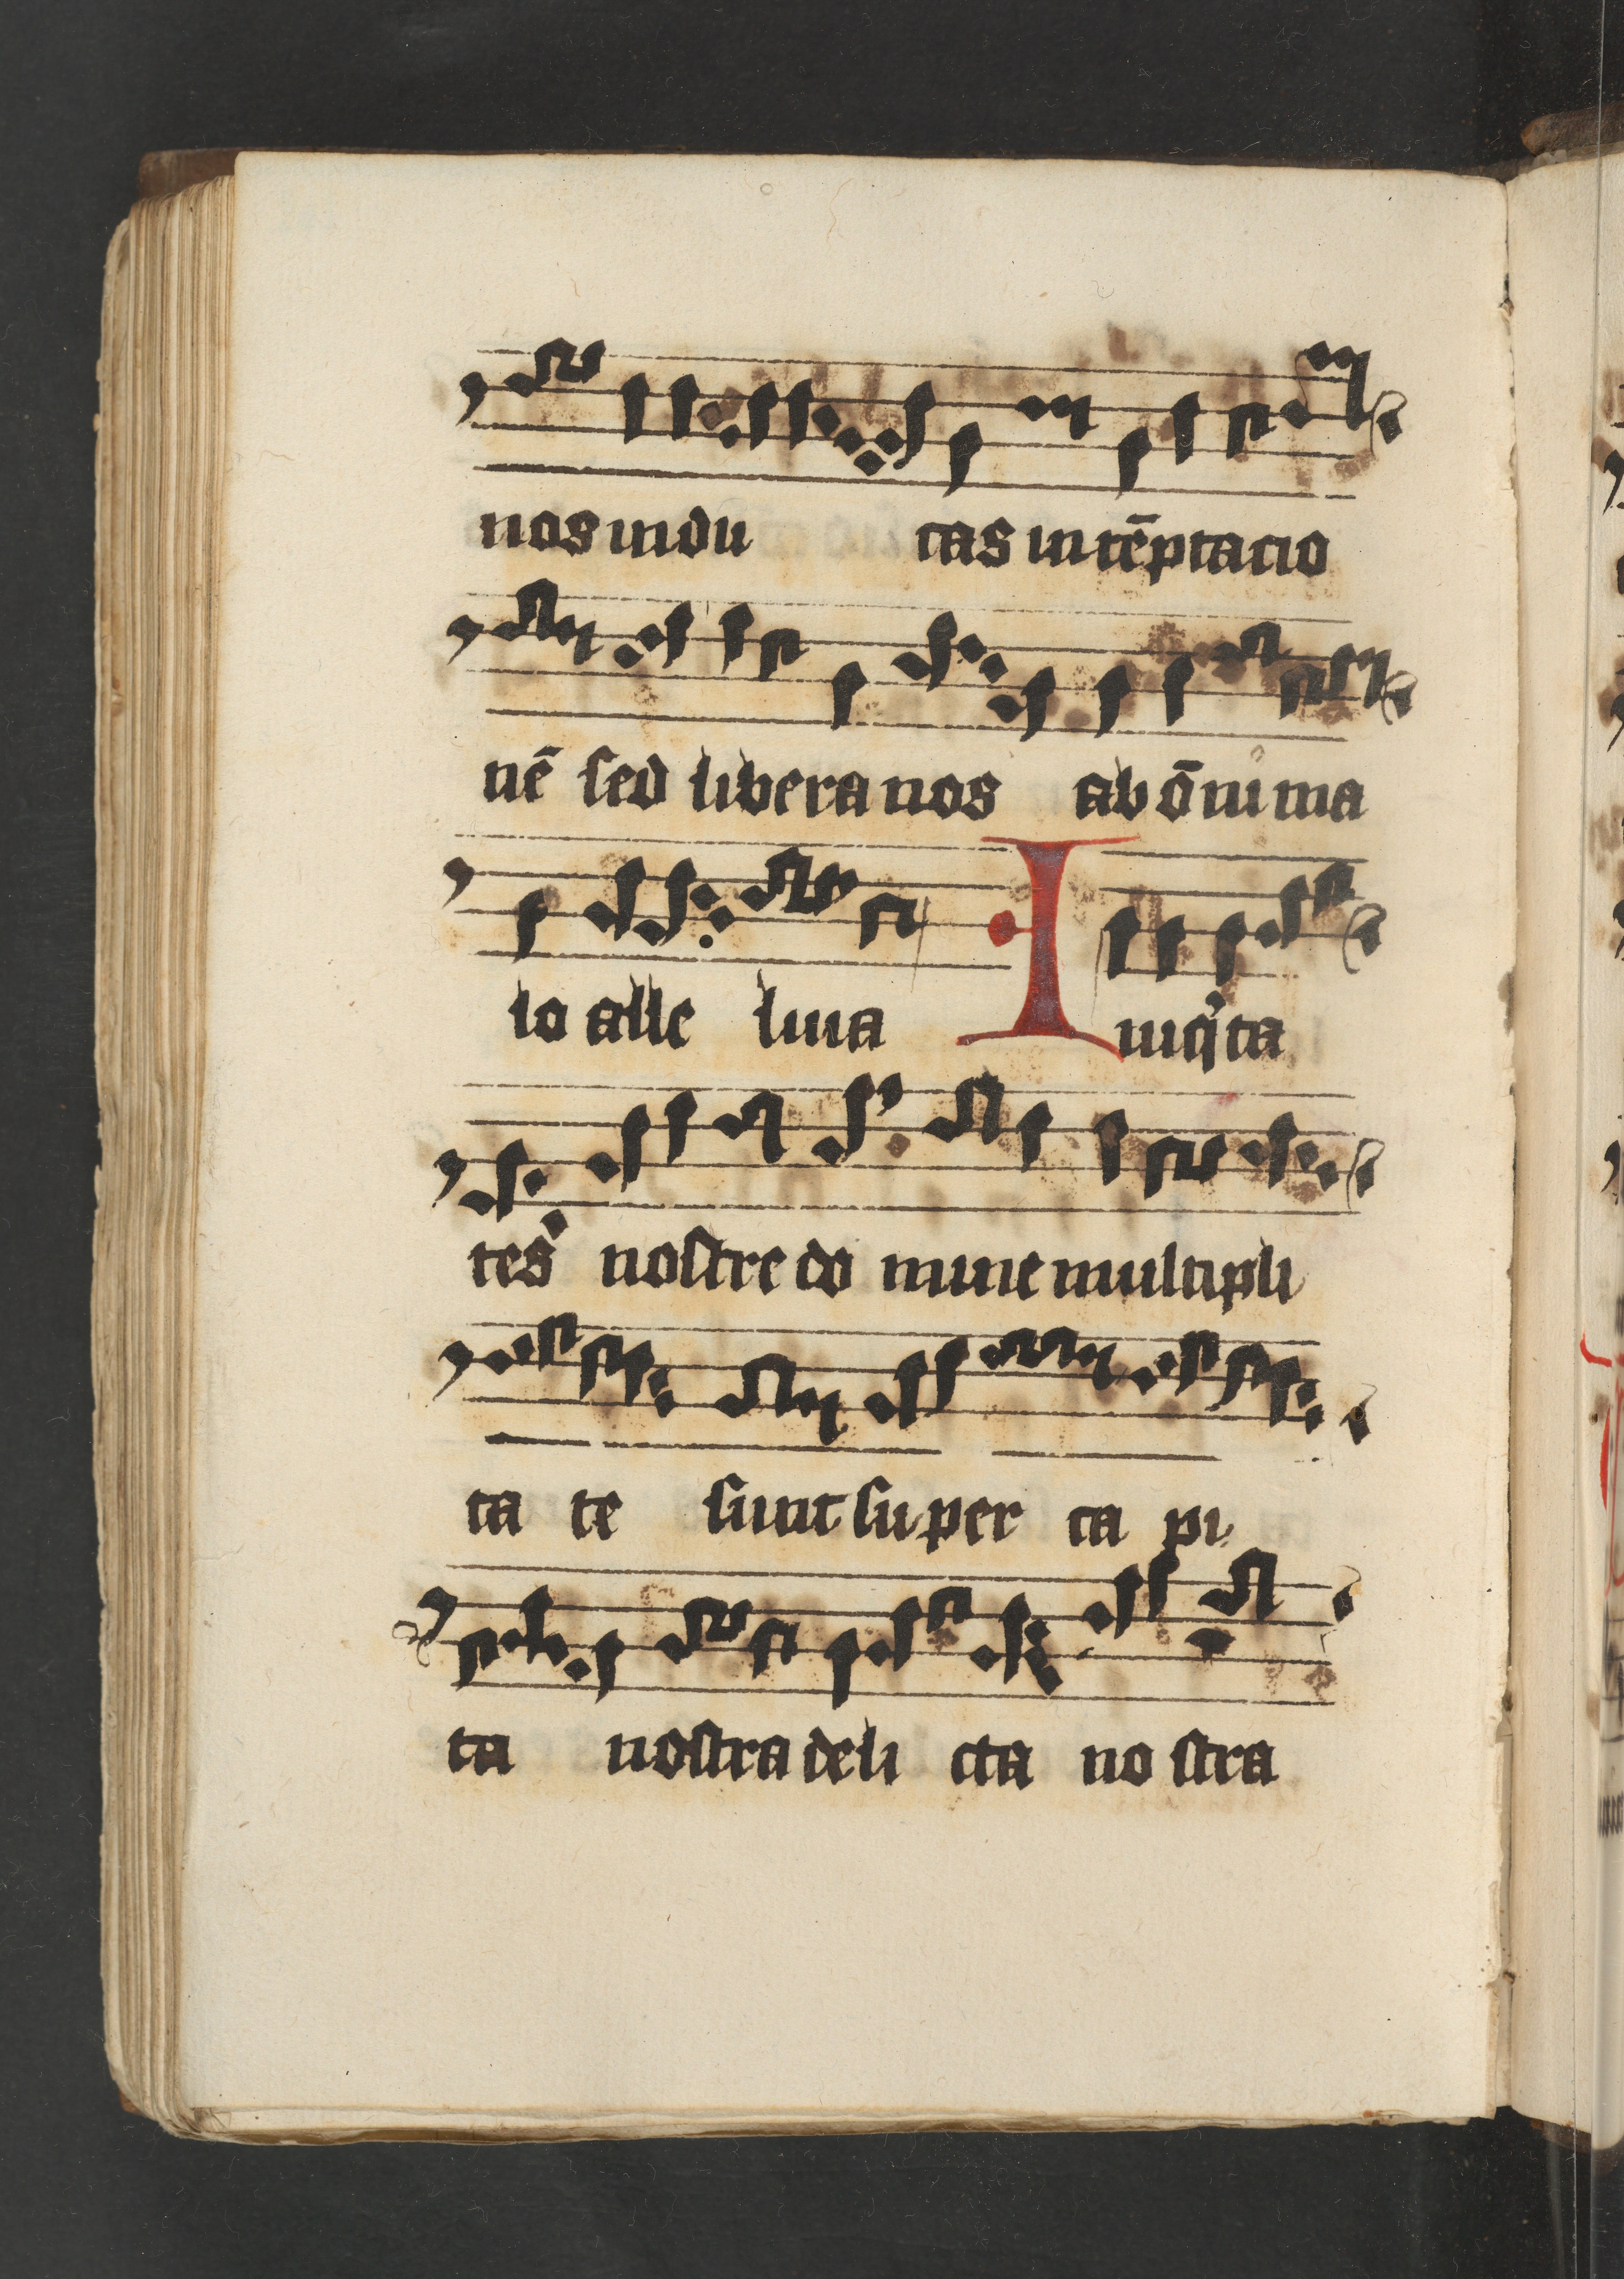 nos indu cas in tēptacio
nē sed libera nos ab ōni ma
lo alle luia Iniq̓ta
tes nostre do mine multipli
ta te sunt super ca pi
ta nostra deli cta no stra